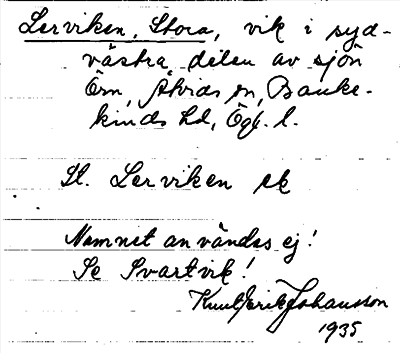 Lerviken, Stora, vik i syd-
västra delen av sjön
Örn, Åtvids sn, Banke-
kinds hd, Ögl. l.
St. Lerviken ek
Namnet användes ej!
Se Svartvik!
Knut Erik Johansson
1935